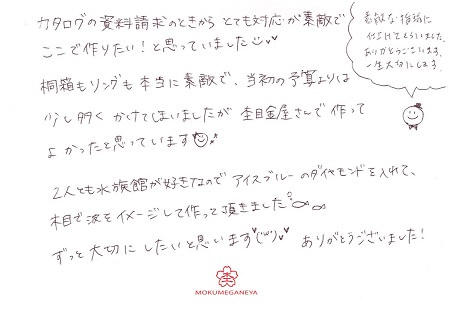 カタログの資料請求のときから とても対応が素敵で
ここで作りたい!と思っていました
桐箱もリングも本当に素敵で、当初の予算よりは
少し多く かけてしまいましたが 杢目金屋さんで 作って
よかったと思っています
2人とも水族館が好きなので アイスブルーのダイヤモンドを入れて、
木目で波をイメージして作って頂きました
ずっと大切にしたいと思います(''ω'') ありがとうございました!
素敵な指輪に
仕上げてもらいました。
ありがとうございます。
一生大切にします。
MOKUMEGANEYA